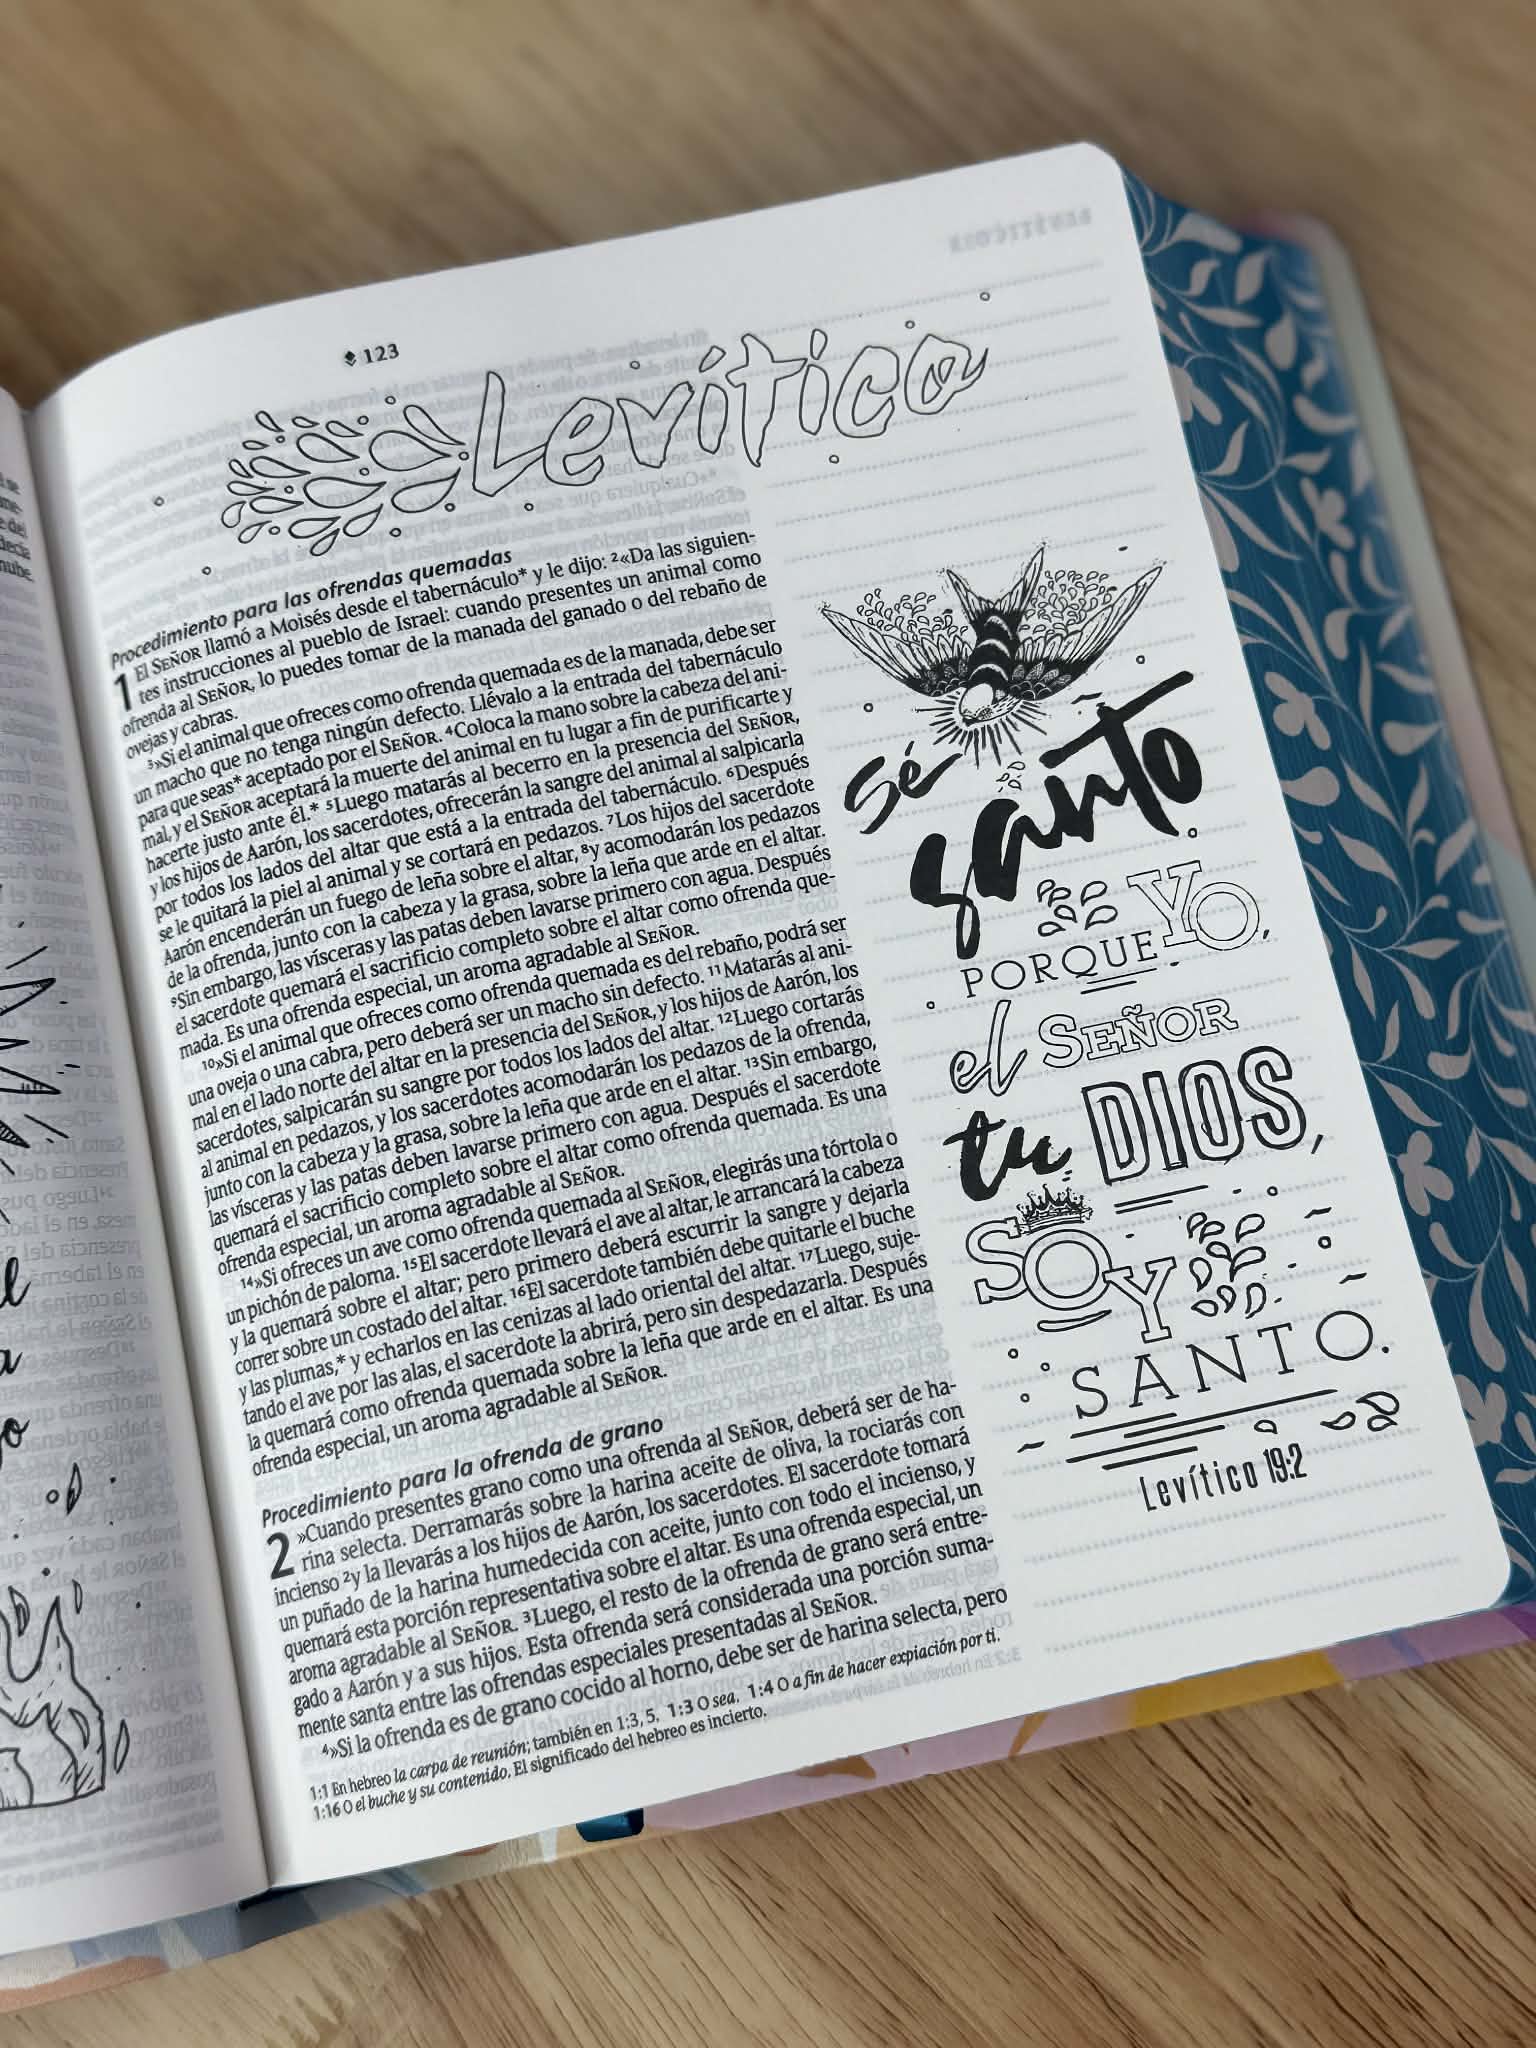 123
Levítico
Procedimiento para las ofrendas quemadas
1 El SEÑOR llamó a Moisés desde el tabernáculo* y le dijo: ²«Da las siguien-
tes instrucciones al pueblo de Israel: cuando presentes un animal como
ofrenda al SEÑOR, lo puedes tomar de la manada del ganado o del rebaño de
ovejas y cabras.
³»Si el animal que ofreces como ofrenda quemada es de la manada, debe ser
un macho que no tenga ningún defecto. Llévalo a la entrada del tabernáculo
para que seas* aceptado por el SEÑOR. ⁴Coloca la mano sobre la cabeza del ani-
mal, y el SEÑOR aceptará la muerte del animal en tu lugar a fin de purificarte y
hacerte justo ante él.* ⁵Luego matarás al becerro en la presencia del SEÑOR,
y los hijos de Aarón, los sacerdotes, ofrecerán la sangre del animal al salpicarla
por todos los lados del altar que está a la entrada del tabernáculo. ⁶Después
se le quitará la piel al animal y se cortará en pedazos. ⁷Los hijos del sacerdote
Aarón encenderán un fuego de leña sobre el altar, ⁸y acomodarán los pedazos
de la ofrenda, junto con la cabeza y la grasa, sobre la leña que arde en el altar.
⁹Sin embargo, las vísceras y las patas deben lavarse primero con agua. Después
el sacerdote quemará el sacrificio completo sobre el altar como ofrenda que-
mada. Es una ofrenda especial, un aroma agradable al SEÑOR.
¹⁰»Si el animal que ofreces como ofrenda quemada es del rebaño, podrá ser
una oveja o una cabra, pero deberá ser un macho sin defecto. ¹¹Matarás al ani-
mal en el lado norte del altar en la presencia del SEÑOR, y los hijos de Aarón, los
sacerdotes, salpicarán su sangre por todos los lados del altar. ¹²Luego cortarás
al animal en pedazos, y los sacerdotes acomodarán los pedazos de la ofrenda,
junto con la cabeza y la grasa, sobre la leña que arde en el altar. ¹³Sin embargo,
las vísceras y las patas deben lavarse primero con agua. Después el sacerdote
quemará el sacrificio completo sobre el altar como ofrenda quemada. Es una
ofrenda especial, un aroma agradable al SEÑOR.
¹⁴»Si ofreces un ave como ofrenda quemada al SEÑOR, elegirás una tórtola o
un pichón de paloma. ¹⁵El sacerdote llevará el ave al altar, le arrancará la cabeza
y la quemará sobre el altar; pero primero deberá escurrir la sangre y dejarla
correr sobre un costado del altar. ¹⁶El sacerdote también debe quitarle el buche
y las plumas,* y echarlos en las cenizas al lado oriental del altar. ¹⁷Luego, suje-
tando el ave por las alas, el sacerdote la abrirá, pero sin despedazarla. Después
la quemará como ofrenda quemada sobre la leña que arde en el altar. Es una
ofrenda especial, un aroma agradable al SEÑOR.
Procedimiento para la ofrenda de grano
2 »Cuando presentes grano como una ofrenda al SEÑOR, deberá ser de ha-
rina selecta. Derramarás sobre la harina aceite de oliva, la rociarás con
incienso ²y la llevarás a los hijos de Aarón, los sacerdotes. El sacerdote tomará
un puñado de la harina humedecida con aceite, junto con todo el incienso, y
quemará esta porción representativa sobre el altar. Es una ofrenda especial, un
aroma agradable al SEÑOR. ³Luego, el resto de la ofrenda de grano será entre-
gado a Aarón y a sus hijos. Esta ofrenda será considerada una porción suma-
mente santa entre las ofrendas especiales presentadas al SEÑOR.
⁴»Si la ofrenda es de grano cocido al horno, debe ser de harina selecta, pero
1:1 En hebreo la carpa de reunión; también en 1:3, 5. 1:3 O sea. 1:4 O a fin de hacer expiación por ti.
1:16 O el buche y su contenido. El significado del hebreo es incierto.
Sé
santo
PORQUE YO,
el SEÑOR
tu DIOS,
SOY
SANTO.
Levítico 19:2